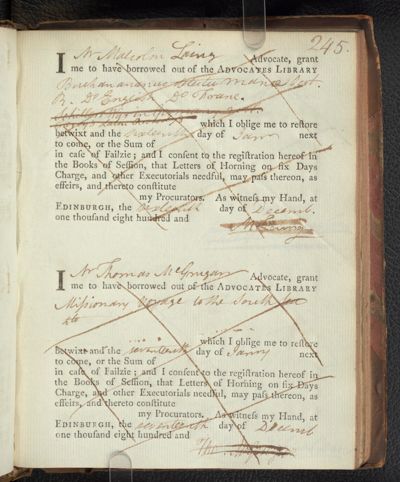 245.
I Mr Malcolm Laing Advocate, grant
me to have borrowed out of the ADVOCATES LIBRARY
Buchananus
R. Do English Do
which I oblige me to restore
betwixt and the day of Janry next
to come, or the Sum of
in case of Failzie; and I consent to the registration hereof in
the Books of Session, that Letters of Horning on six Days
Charge, and other Executorials needful, may pass thereon, as
effeirs, and thereto constitute
my Procurators. As witness my Hand, at
EDINBURGH, the day of Decemb.
one thousand eight hundred and
M. Laing
I Mr Thomas McGrugar Advocate, grant
me to have borrowed out of the ADVOCATES LIBRARY
Missionary Voyage to the South Sea
which I oblige me to restore
betwixt and the seventeenth day of Janry next
to come, or the Sum of
in case of Failzie; and I consent to the registration hereof in
the Books of Session, that Letters of Horning on six Days
Charge, and other Executorials needful, may pass thereon, as
effeirs, and thereto constitute
my Procurators. As witness my Hand, at
EDINBURGH, the seventeenth day of Decemb
one thousand eight hundred and